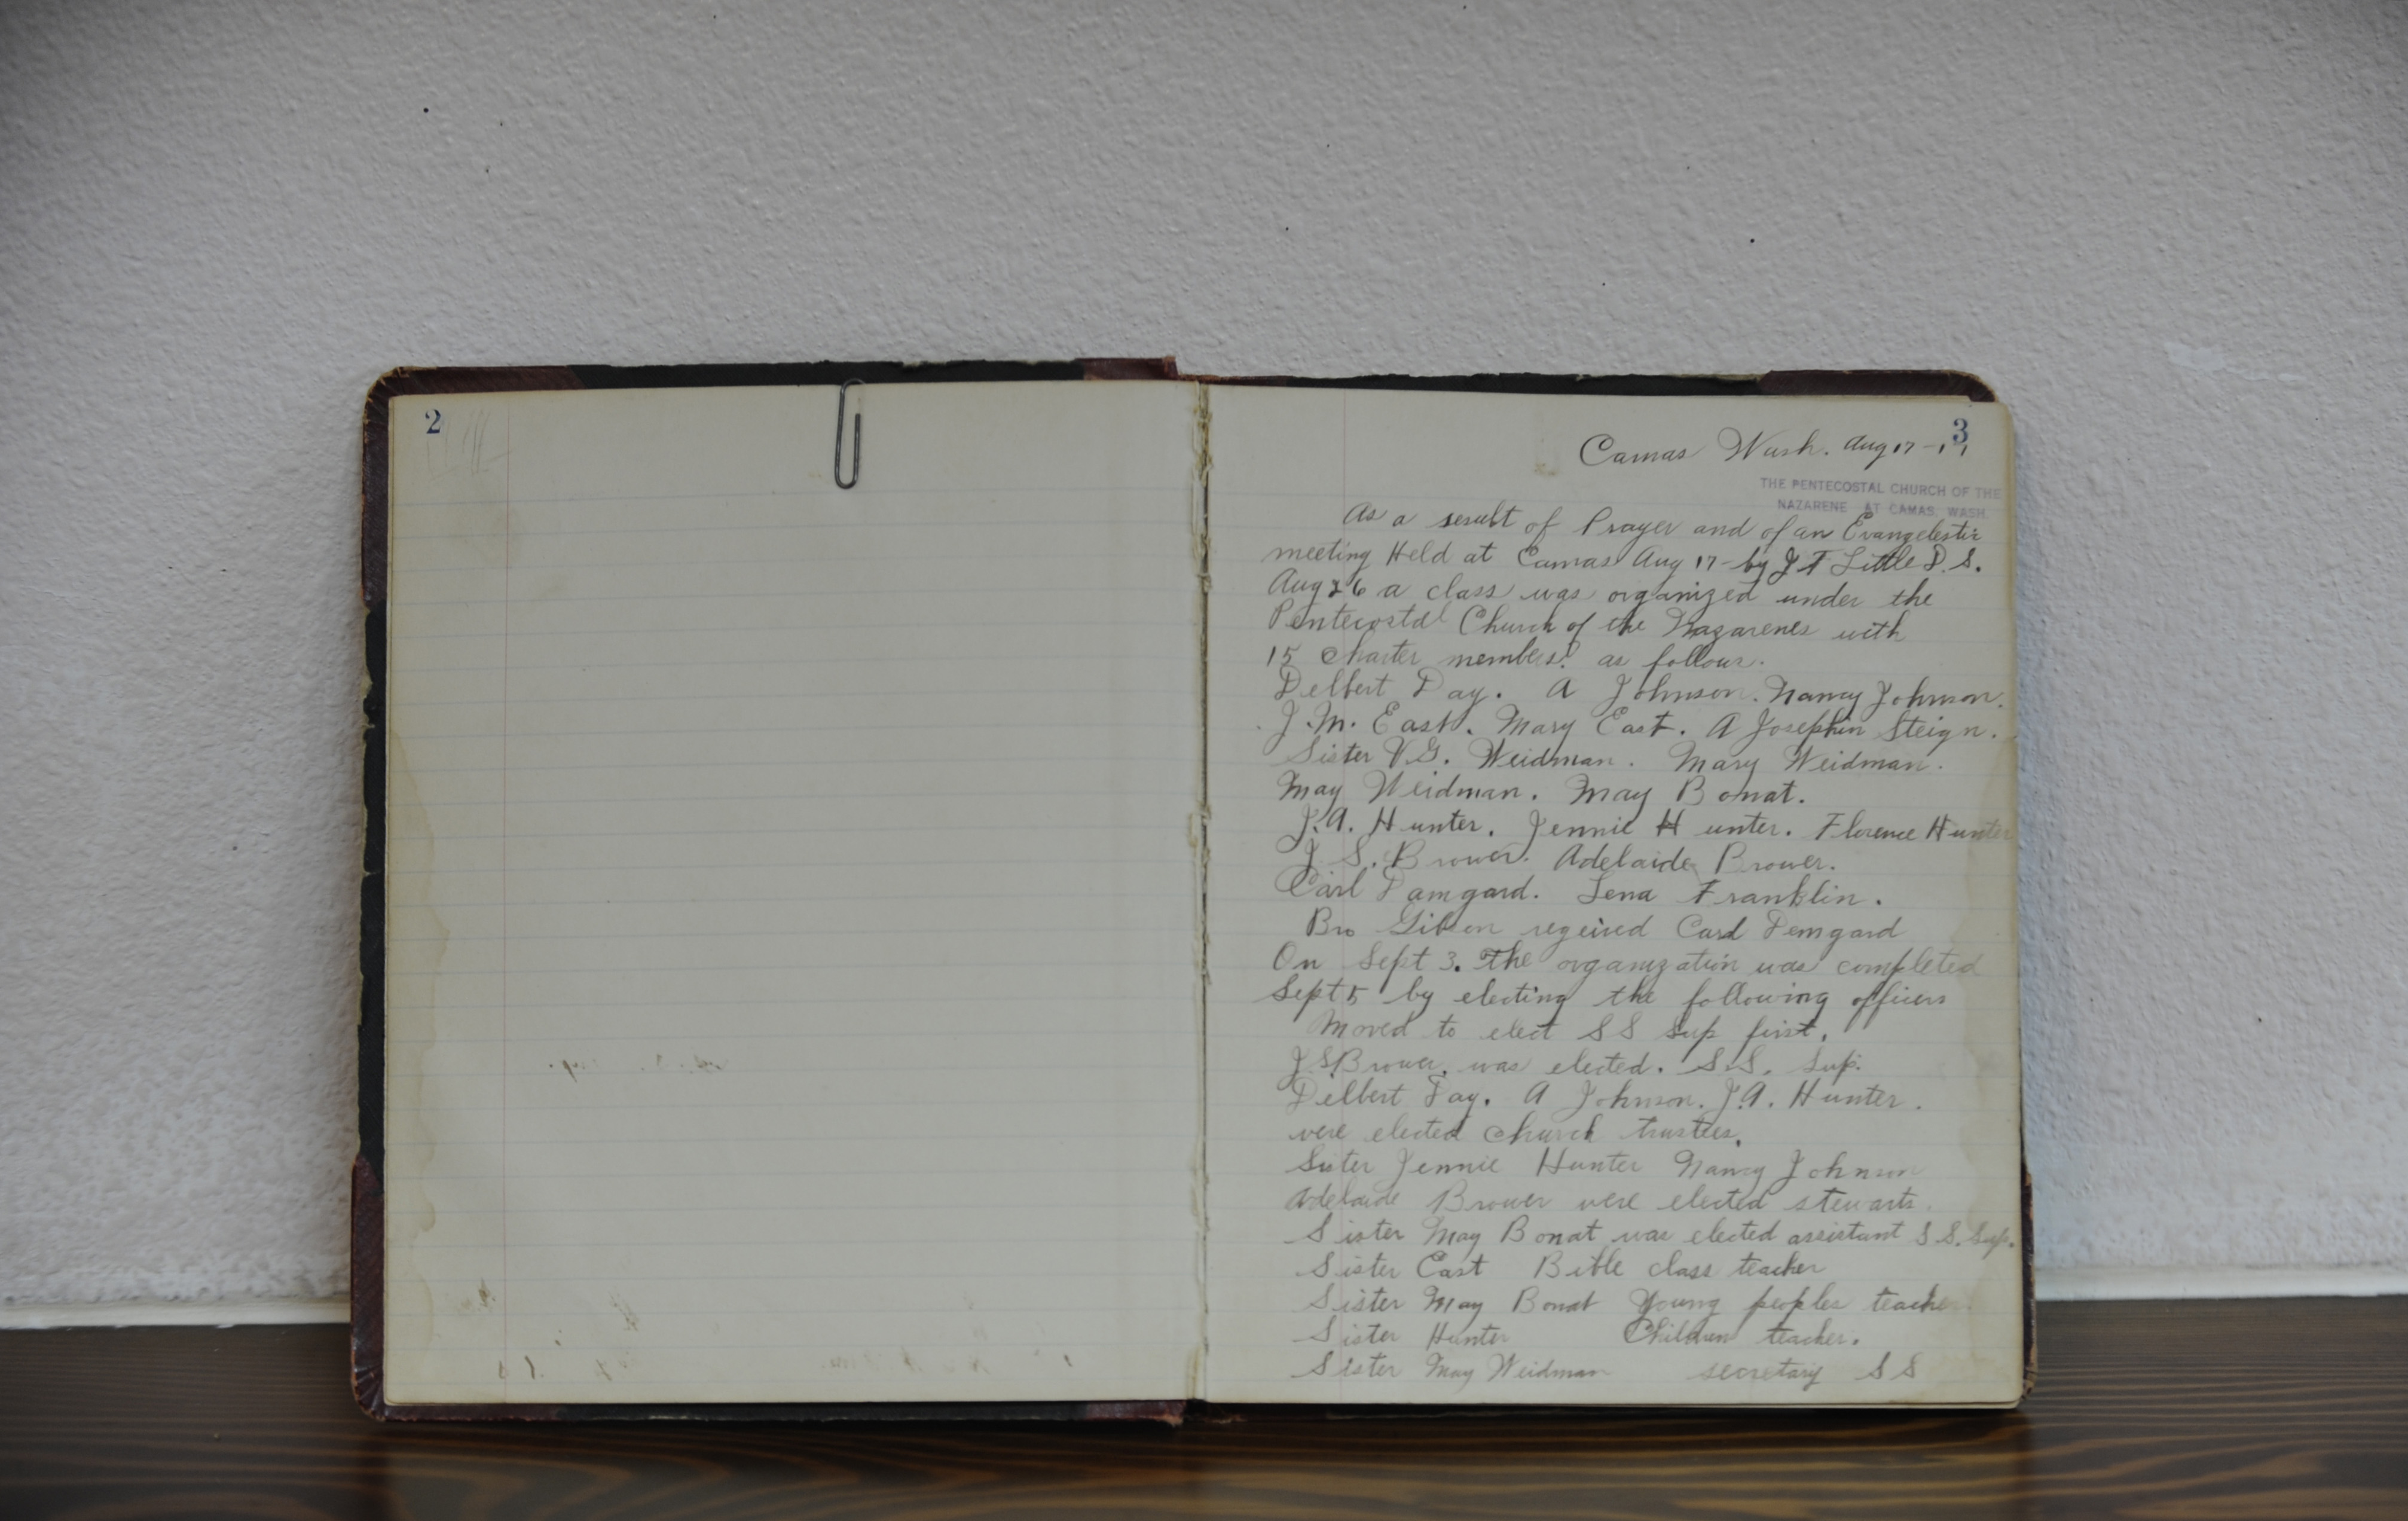 2
3
Camas Wash. Aug 17 - 11
THE PENTECOSTAL CHURCH OF THE
NAZARENE AT CAMAS, WASH.
As a result of Prayer and of an Evangelestic
meeting Held at Camas Aug 17 - by J T Little D. S.
Aug 26 a class was organized under the
Pentecostal Church of the Nazarenes with
15 charter members. as follows.
Delbert Day. A Johnson. Nancy Johnson.
J. M. East. Mary East. A Josephin Steign.
Sister V. G. Weidman. Mary Weidman.
May Weidman. May Bonat.
J. A. Hunter. Jennie Hunter. Florence Hunter
J. S. Brower. Adelaide Brower.
Carl Damgard. Lena Franklin.
Bro regeived Carl Demgard
On Sept 3. The organization was completed
Sept 5 by electing the following officers
Moved to elect S S Sup first.
J S Brower. was elected. S. S. Sup.
Delbert Day. A Johnson. J. A. Hunter.
were elected church trustees.
Sister Jennie Hunter Nancy Johnson
Adelaide Brower were elected stewarts.
Sister May Bonat was elected assistant S. S. Sup.
Sister East Bible class teacher
Sister May Bonat Young peoples teacher.
Sister Hunter Children teacher.
Sister May Weidman secretary S S